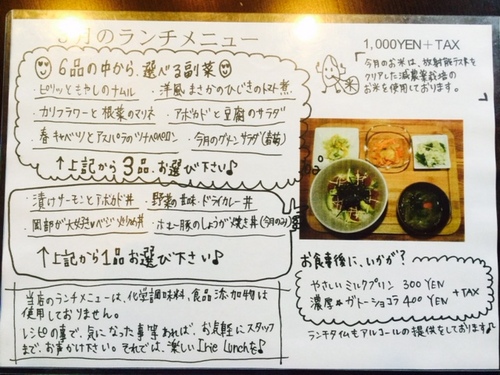 月のランチメニュー
6品の中から、選べる副菜
・ピリッともやしのナムル ・洋風まさかのひじきのトマト煮
・カリフラワーと根菜のマリネ ・アボカドと豆腐のサラダ
・春キャベツとアスパラのツナペペロンチーノ ・今月のグリーンサラダ
↑上記から3品、お選び下さい♪
・漬けサーモンとアボカド丼 ・野菜の旨味・ドライカレー丼
・岡部が大好き♥ベジ 丼 ・ホエー豚のしょうが焼き丼(今月のみ)
↑上記から1品お選び下さい♪
当店のランチメニューは、化学調味料、食品添加物は
使用しておりません。
レシピの事で、気になった事等あれば、お気軽にスタッフ
まで、お声かけ下さい。それでは、楽しい Irie Lunchを♪
1,000YEN+TAX
今月のお米は、放射能テストを
クリアした減農薬栽培の
お米を使用しております。
米
お食事後に、いかが?
やさしいミルクプリン 300YEN
濃厚★ガトーショコラ 400YEN
+TAX
ランチタイムもアルコールの提供をしております♪